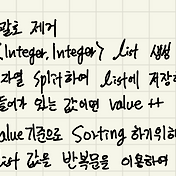 말로 제거
<Integer, Integer> list 생성
자열 split하여 list에 저장하
들어가 있는 값이면 value ++
alue 기준으로 Sorting 하기위해
ist 값을 반복문을 이용하여